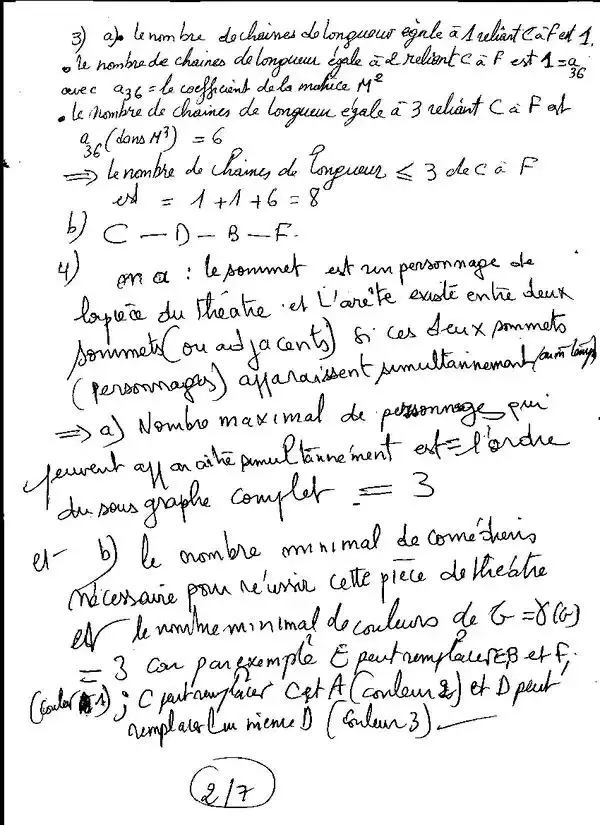 3) a). le nombre de chaines de longueur égale à 1 reliant C à F est 1.
. le nombre de chaines de longueur égale à 2 reliant C à F est 1 = a36
avec a36 = le coefficient de la matrice M²
. le nombre de chaines de longueur égale à 3 reliant C à F est
a36 (dans M³) = 6
⟹ le nombre de chaines de longueur ≤ 3 de C à F
est = 1 + 1 + 6 = 8
b) C — D — B — F.
4) on a : le sommet est un personnage de
la pièce du théatre et L'arête existe entre deux
sommets (ou adjacents) si ces deux sommets
(personnages) apparaissent simultannement
⟹ a) Nombre maximal de personnages qui
peuvent apparaitre simultannément est = l'ordre
du sous graphe complet = 3
et b) le nombre minimal de comédiens
nécessaire pour réussir cette pièce de théâtre
est le nombre minimal de couleurs de G = γ(G)
= 3 car par exemple E peut remplacer E B et F,
(couleur 1) ; C peut remplacer C et A (couleur 2) et D peut
remplacer lui meme D (couleur 3).
2/7